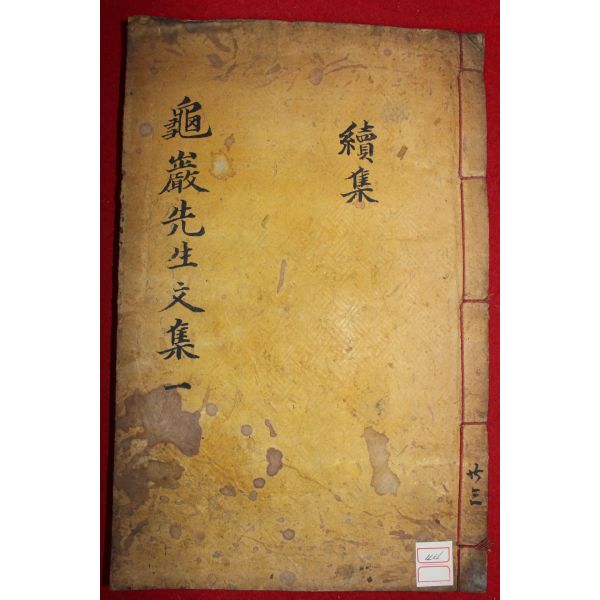 龜巖先生文集 一
續集
共三